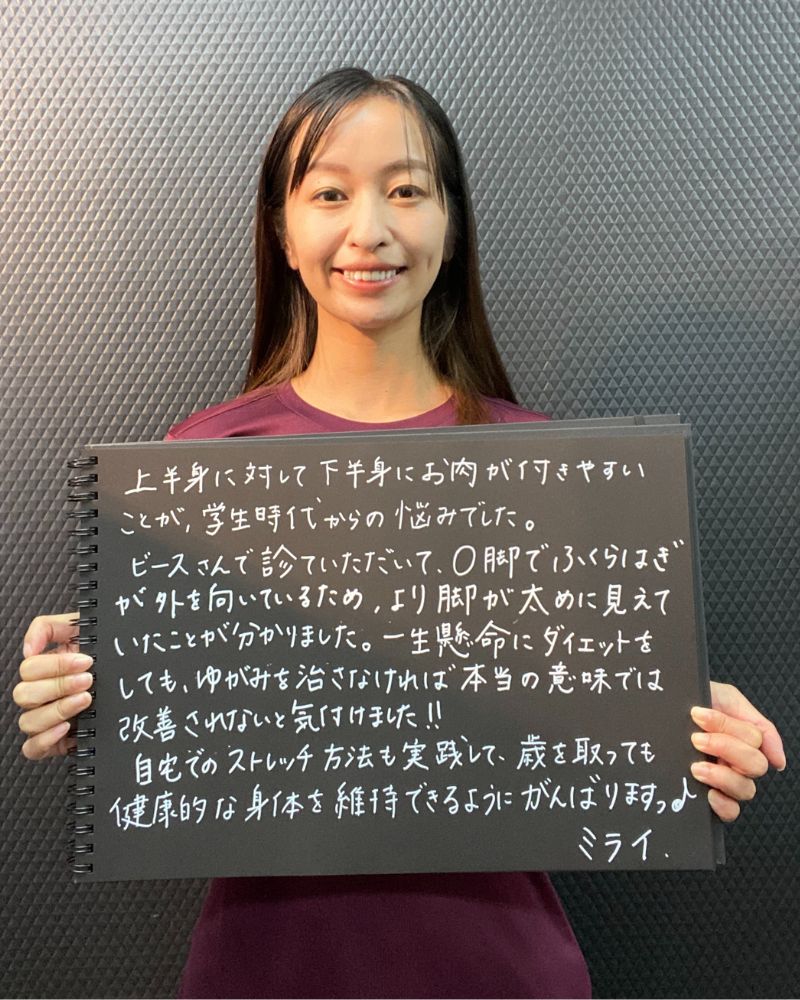 上半身に対して下半身にお肉が付きやすい
ことが、学生時代からの悩みでした。
ビースさんで診ていただいて、O脚でふくらはぎ
が外を向いているため、より脚が太めに見えて
いたことが分かりました。一生懸命にダイエットを
しても、ゆがみを治さなければ本当の意味では
改善されないと気付けました!!
自宅でのストレッチ方法も実践して、歳を取っても
健康的な身体を維持できるようにがんばりますっ♪
ミライ.